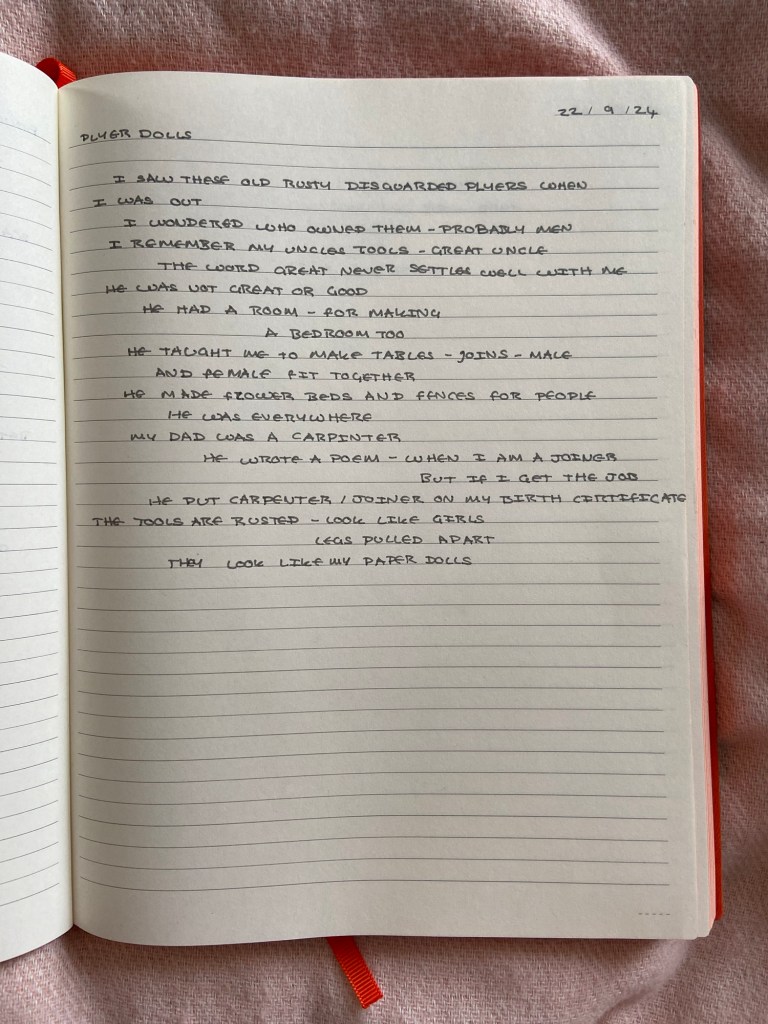 22 / 9 / 24
PLYER DOLLS
I SAW THESE OLD RUSTY DISGUARDED PLYERS WHEN
I WAS OUT
I WONDERED WHO OWNED THEM - PROBABLY MEN
I REMEMBER MY UNCLES TOOLS - GREAT UNCLE
THE WORD GREAT NEVER SETTLES WELL WITH ME
HE WAS NOT GREAT OR GOOD
HE HAD A ROOM - FOR MAKING
A BEDROOM TOO
HE TAUGHT ME TO MAKE TABLES - JOINS - MALE
AND FEMALE FIT TOGETHER
HE MADE FLOWER BEDS AND FENCES FOR PEOPLE
HE WAS EVERYWHERE
MY DAD WAS A CARPINTER
HE WROTE A POEM - WHEN I AM A JOINER
BUT IF I GET THE JOB
HE PUT CARPENTER / JOINER ON MY BIRTH CIRTIFICATE
THE TOOLS ARE RUSTED - LOOK LIKE GIRLS
LEGS PULLED APART
THEY LOOK LIKE MY PAPER DOLLS